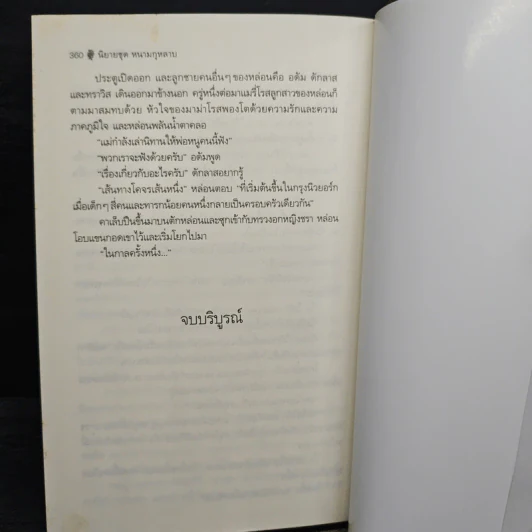 360 นิยายชุด หนามกุหลาบ
ประตูเปิดออก และลูกชายคนอื่นๆ ของหล่อนคือ อดัม ดักลาส
และทราวิส เดินออกมาข้างนอก ครู่หนึ่งต่อมาแมรี่โรสลูกสาวของหล่อนก็
ตามมาสมทบด้วย หัวใจของมาม่าโรสพองโตด้วยความรักและความ
ภาคภูมิใจ และหล่อนพลันน้ำตาคลอ
"แม่กำลังเล่านิทานให้พ่อหนูคนนี้ฟัง"
"พวกเราจะฟังด้วยครับ" อดัมพูด
"เรื่องเกี่ยวกับอะไรครับ" ดักลาสอยากรู้
"เส้นทางโคจรเส้นหนึ่ง" หล่อนตอบ "ที่เริ่มต้นขึ้นในกรุงนิวยอร์ก
เมื่อเด็กๆ สี่คนและทารกน้อยคนหนึ่งกลายเป็นครอบครัวเดียวกัน"
คาเล็บปีนขึ้นมาบนตักหล่อนและซุกเข้ากับทรวงอกหญิงชรา หล่อน
โอบแขนกอดเขาไว้และเริ่มโยกไปมา
"ในกาลครั้งหนึ่ง..."
จบบริบูรณ์